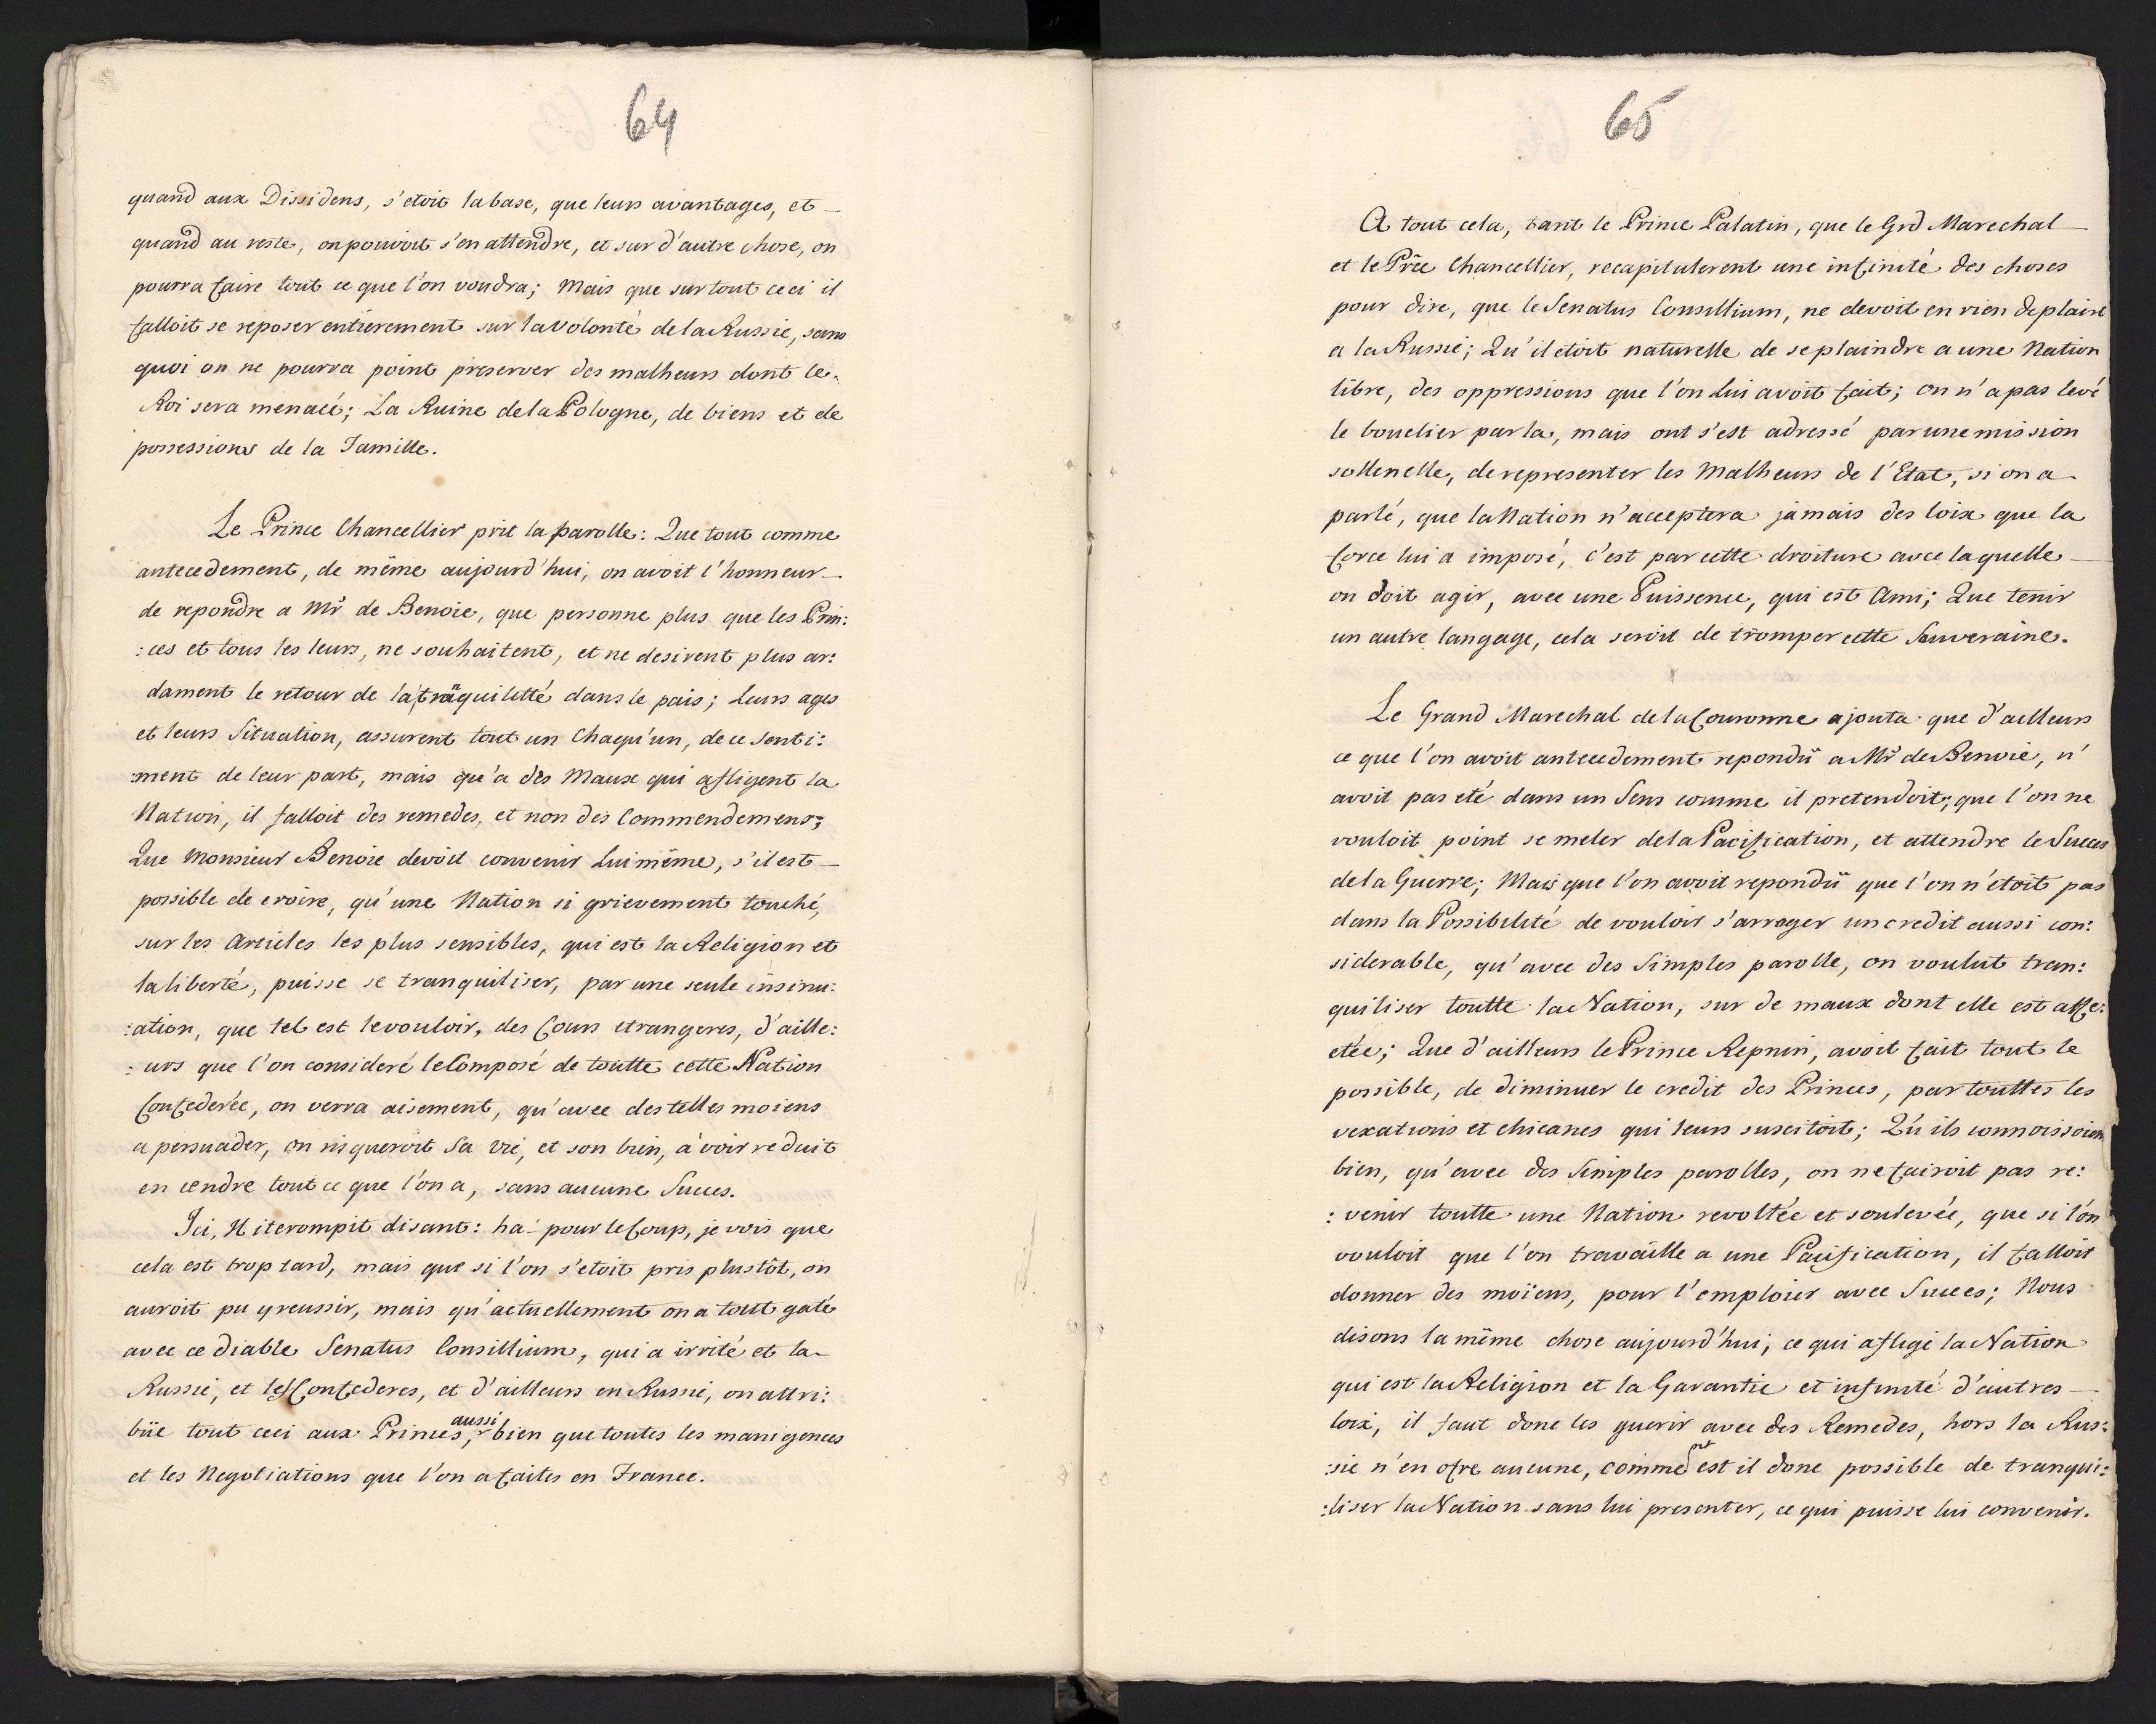 64
quand aux Dissidens, s'etoit la base, que leurs avantages, et
quand au reste, on pouvoit s'en attendre, et sur d'autre chose, on
pourra faire tout ce que l'on voudra; Mais que sur tout ceci il
falloit se reposer entierement sur la volonté de la Russie, sans
quoi on ne pourra point preserver des malheurs dont le
Roi sera menacé; La Ruine de la Pologne, de biens et de
possessions de la Famille.
Le Prince Chancellier prit la parolle: Que tout comme
antecedement, de même aujourd'hui, on avoit l'honneur
de repondre a Mr de Benoie, que personne plus que les Prin:
:ces et tous les leurs, ne souhaitent, et ne desirent plus ar:
dament le retour de la trãquiletté dans le pais; leurs ages
et leurs Situation, assurent tout un Chaqu'un, de ce senti:
:ment de leur part, mais qu'a des Maux qui afligent la
Nation, il falloit des remedes, et non des Commendemens;
Que Monsieur Benoie devoit convenir Lui même, s'il est
possible de croire, qu'une Nation si grievement touché,
sur les Articles les plus sensibles, qui est la Religion et
la liberté, puisse se tranquiliser, par une seule insinu:
:ation, que tel est le vouloir, des Cours etrangeres, d'aille:
:urs que l'on consideré le Composé de toutte cette Nation
Confederée, on verra aisement, qu'avec des telles moiens
a persuader, on risqueroit sa vie, et son bien, a voir reduit
en cendre tout ce que l'on a, sans aucune Succes.
Ici, Il iterompit disant: ha pour le Coup, je vois que
cela est trop tard, mais que si l'on s'etoit pris plustôt, on
auroit pu y reussir, mais qu'actuellement on a tout gaté
avec ce diable Senatus Consillium, qui a irrité et la
Russie, et les Confederes, et d'ailleurs en Russie, on attri:
büe tout ceci aux Princes, aussi bien que toutes les manigences
et les Negotiations que l'on a faites en France.
65
A tout cela, tant le Prince Palatin, que le Grd Marechal
et le Pr͠ce Chancellier, recapitulerent une infinité des choses
pour dire, que le Senatus Consillium, ne devoit en rien deplaire
a la Russie; Qu'il etoit naturelle de se plaindre a une Nation
libre, des oppressions que l'on Lui avoit fait; on n'a pas levé
le bouclier par la, mais ont s'est adressé par une mission
sollenelle, de representer les Malheurs de l'Etat, si on a
parlé, que la Nation n'acceptera jamais des loix que la
force lui a imposé, c'est par cette droiture avec laquelle
on doit agir, avec une Puissence, qui est Ami; Que tenir
un autre langage, cela seroit de tromper cette Souveraine.
Le Grand Marechal de la Couronne ajouta que d'ailleurs
ce que l'on avoit antecedement repondü a Mr de Benoie, n'
avoit pas eté dans un Sens comme il pretendoit; que l'on ne
vouloit point se meler de la Pacification, et attendre le Succes
de la Guerre; Mais que l'on avoit repondü que l'on n'etoit pas
dans la Possibilité de vouloir s'arroger un credit aussi con:
siderable, qu'avec des Simples parolle, on voulut tran:
quiliser toutte la Nation, sur de maux dont elle est affe:
ctée; Que d'ailleurs le Prince Repnin, avoit fait tout le
possible, de diminuer le credit des Princes, par touttes les
vexations et chicanes qui leurs suscitoit; Qu'ils connoissoient
bien, qu'avec des Simples parolles, on ne fairoit pas re:
:venir toutte une Nation revoltée et soulevée, que si l'on
vouloit que l'on travaille a une Pacification, il falloit
donner des moïens, pour l'emploier avec Succes; Nous
disons la même chose aujourd'hui, ce qui aflige la Nation
qui est la Religion et la Garantie et infinité d'autres
loix, il faut donc les guerir avec des Remedes, hors la Rus:
:sie n'en ofre aucune, comment est il donc possible de tranqui:
:liser la Nation sans lui presenter, ce qui puisse lui convenir.